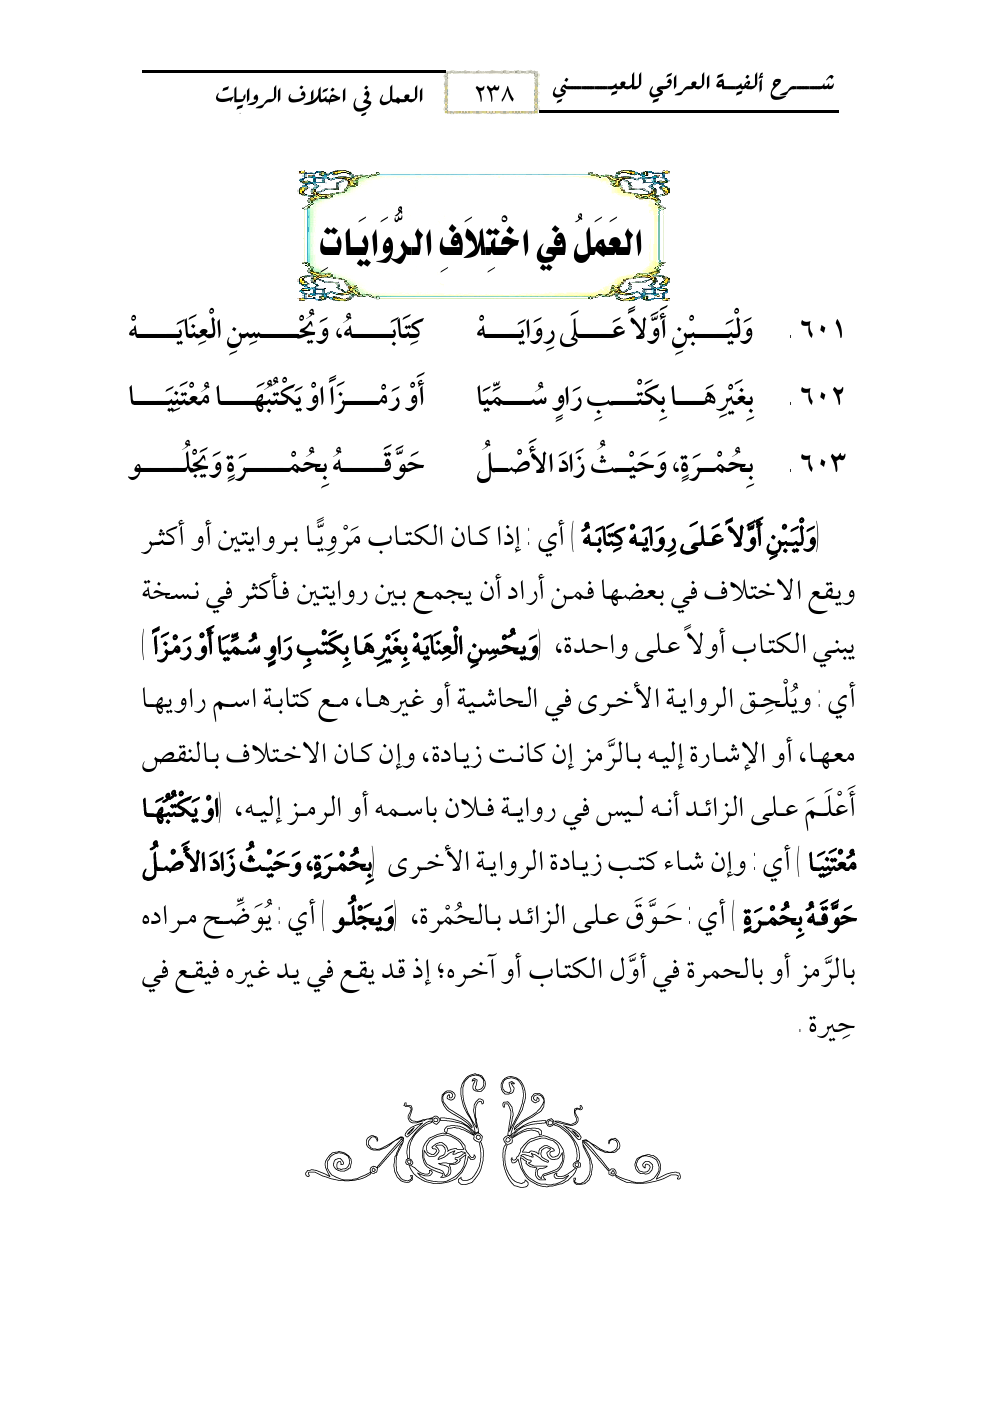 شرح ألفية العراقي للعيني
٢٣٨
العمل في اختلاف الروايات
العَمَلُ في اخْتِلاَفِ الرُّوَايَاتِ
٦٠١ . وَلْيَبْنِ أَوَّلاً عَلَى رِوَايَهْ كِتَابَهُ، وَيُحْسِنِ الْعِنَايَهْ
٦٠٢ . بِغَيْرِهَا بِكَتْبِ رَاوٍ سُمِّيَا أَوْ رَمْزَاً اوْ يَكْتُبُهَا مُعْتَنِيَا
٦٠٣ . بِحُمْرَةٍ، وَحَيْثُ زَادَ الأَصْلُ حَوَّقَهُ بِحُمْرَةٍ وَيَجْلُو
(وَلْيَبْنِ أَوَّلاً عَلَى رِوَايَهْ كِتَابَهُ ) أي : إذا كان الكتاب مَرْوِيًّا بروايتين أو أكثر
ويقع الاختلاف في بعضها فمن أراد أن يجمع بين روايتين فأكثر في نسخة
يبني الكتاب أولاً على واحدة، (وَيحُسِنِ الْعِنَايَهْ بِغَيْرِهَا بِكَتْبِ رَاوٍ سُمِّيَا أَوْ رَمْزَاً )
أي : ويُلْحِق الرواية الأخرى في الحاشية أو غيرها، مع كتابة اسم راويها
معها، أو الإشارة إليه بالرَّمز إن كانت زيادة، وإن كان الاختلاف بالنقص
أَعْلَمَ على الزائد أنه ليس في رواية فلان باسمه أو الرمز إليه، (اوْ يَكْتُبُهَا
مُعْتَنِيَا ) أي : وإن شاء كتب زيادة الرواية الأخرى (بِحُمْرَةٍ، وَحَيْثُ زَادَ الأَصْلُ
حَوَّقَهُ بِحُمْرَةٍ ) أي : حَوَّقَ على الزائد بالحُمْرة، (وَيجَْلُو ) أي : يُوَضِّح مراده
بالرَّمز أو بالحمرة في أوَّل الكتاب أو آخره؛ إذ قد يقع في يد غيره فيقع في
حِيرة .